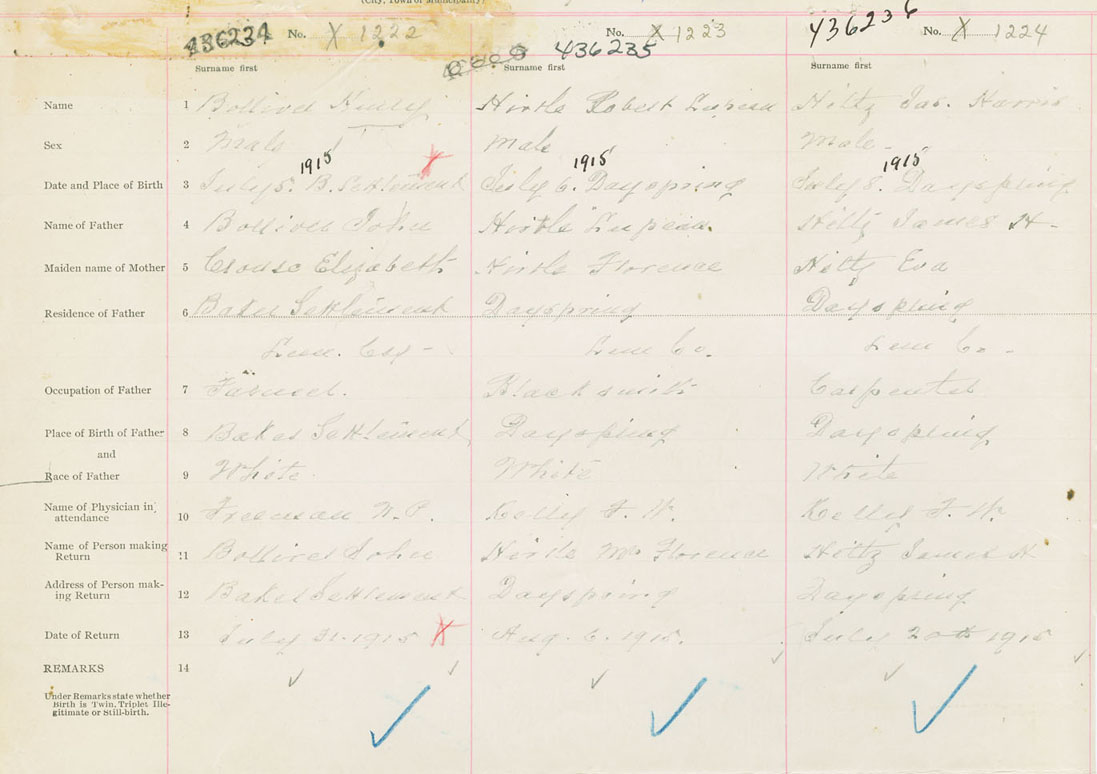 (City, Town or Municipality)
436234 No. X 1222 No. X 1223 436236 No. X 1224
436235
Surname first Surname first Surname first
Name 1 Bolliver Hirtle Robert Hiltz Jas. Harris
Sex 2 Male Male Male
1915 1915 1915
Date and Place of Birth 3 July 5. B. Settlement July 6. Dayspring July 8. Dayspring
Name of Father 4 Bolliver John Hirtle Hiltz James H
Maiden name of Mother 5 Crouse Elizabeth Hirtle Florence Hiltz Eva
Residence of Father 6 Baker Settlement Dayspring Dayspring
Lun. Co Lun Co. Lun Co.
Occupation of Father 7 Farmer. Blacksmith Carpenter
Place of Birth of Father 8 Baker Settlement Dayspring Dayspring
and
Race of Father 9 White White White
Name of Physician in attendance 10 Freeman W. P. Kelly F. W. Kelly F. W.
Name of Person making Return 11 Bolliver John Hirtle Mrs Florence Hiltz James H
Address of Person making Return 12 Baker Settlement Dayspring Dayspring
Date of Return 13 July 31-1915 Aug. 6. 1915. July 20th 1915
REMARKS 14
Under Remarks state whether
Birth is Twin, Triplet Ille-
gitimate or Still-birth.